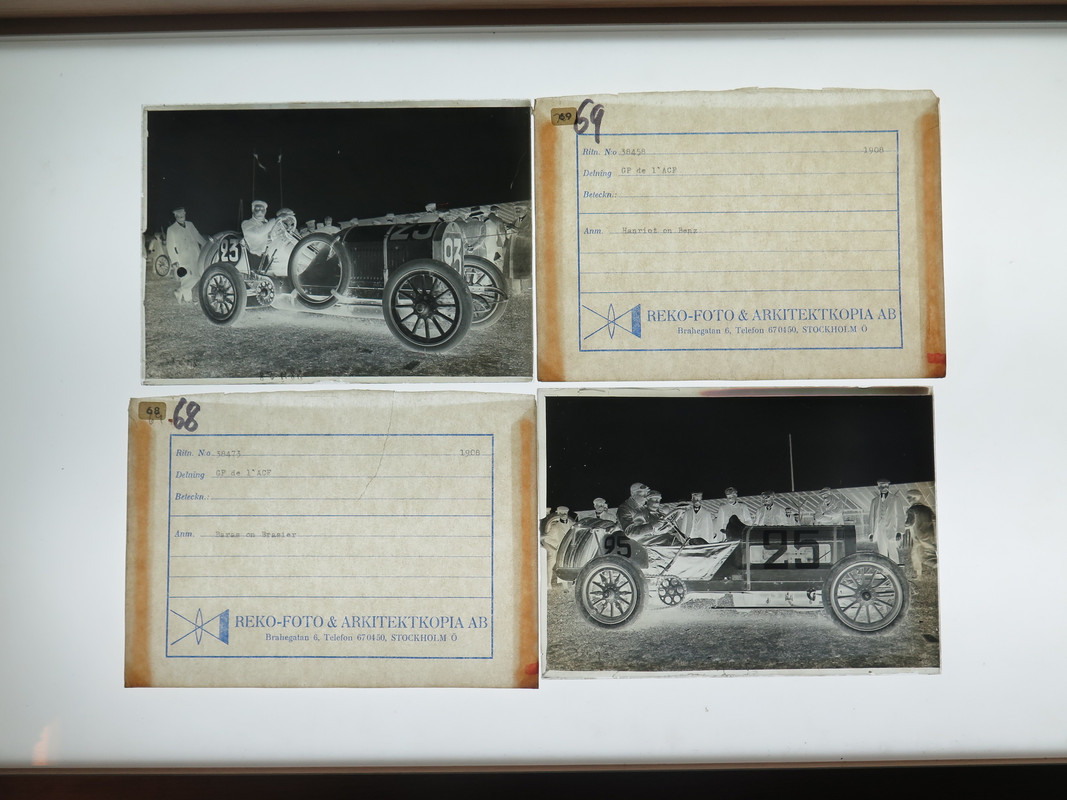 23
23
69
69
Ritn. No 38458 1908
Delning GP de l'ACF
Beteckn.:
Anm. Hanriot on Benz
REKO-FOTO & ARKITEKTKOPIA AB
Brahegatan 6, Telefon 670450, STOCKHOLM Ö
68
68
Ritn. No 38473 1908
Delning GP de l'ACF
Beteckn.:
Anm. Baras on Brasier
REKO-FOTO & ARKITEKTKOPIA AB
Brahegatan 6, Telefon 670450, STOCKHOLM Ö
95
25